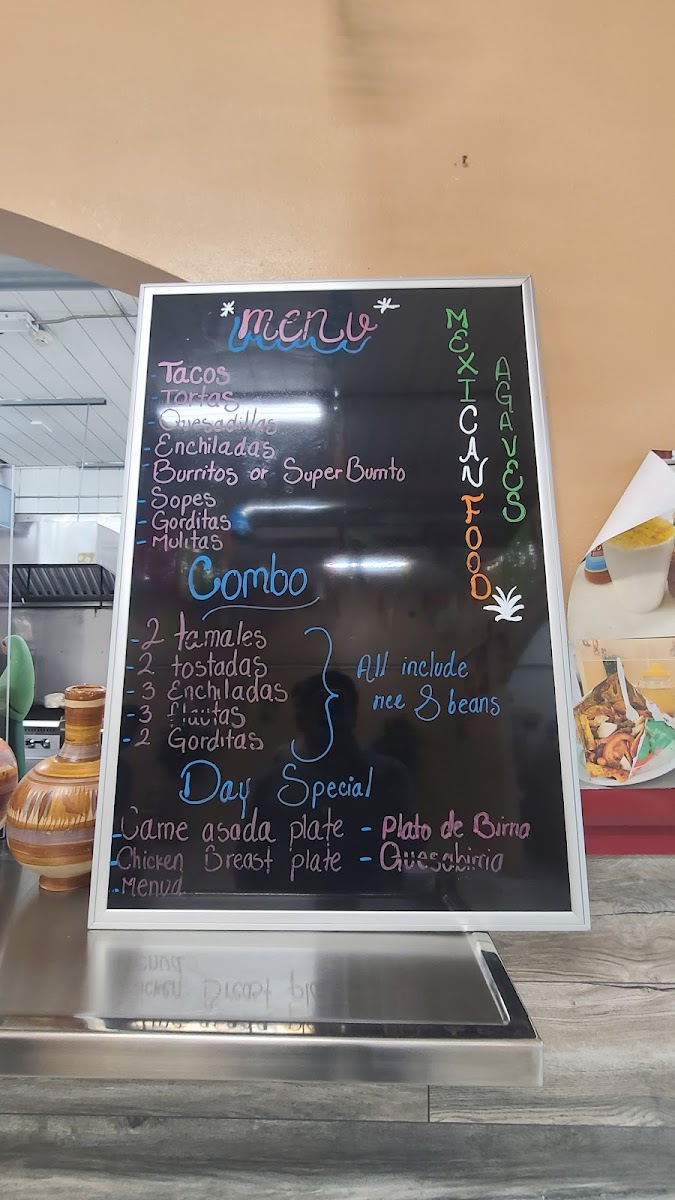 *MENU*
- Tacos
- Tortas
- Quesadillas
- Enchiladas
- Burritos or Super Burrito
- Sopes
- Gorditas
- Mulitas
Combo
- 2 tamales
- 2 tostadas
- 3 Enchiladas
- 3 flautas
- 2 Gorditas
All include
rice & beans
Day Special
- Carne asada plate - Plato de Birria
- Chicken Breast plate - Quesabirria
- Menud
MEXICAN FOOD
AGAVES